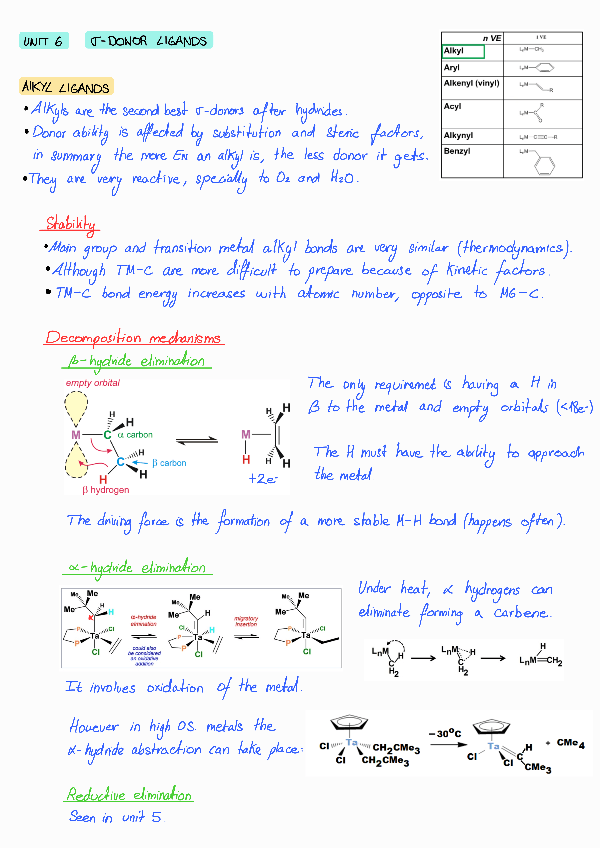 UNIT 6 σ-DONOR LIGANDS
n VE 1 VE
Alkyl LₙM—CH₃
Aryl LₙM
Alkenyl (vinyl) LₙM R
Acyl LₙM—C R O
Alkynyl LₙM—C≡C—R
Benzyl LₙM
AlKYL LIGANDS
• Alkyls are the second best σ-donors after hydrides.
• Donor ability is affected by substitution and steric factors,
in summary the more EN an alkyl is, the less donor it gets.
• They are very reactive, specially to O₂ and H₂O.
Stability
• Main group and transition metal alkyl bonds are very similar (thermodynamics).
• Although TM-C are more difficult to prepare because of kinetic factors.
• TM-C bond energy increases with atomic number, opposite to MG-C.
Decomposition mechanisms
β-hydride elimination
empty orbital
M C H H α carbon
C H H β carbon
H
β hydrogen
M H H H H H
+2e-
The only requiremet is having a H in
β to the metal and empty orbitals (<18e-)
The H must have the ability to approach
the metal
The driving force is the formation of a more stable M-H bond (happens often).
α-hydride elimination
Me Me Me H H P P Ta Cl Cl
α-hydride
elimination
could also
be considered
an oxidative
addition
Me Me Me H H P P Ta Cl Cl
migratory
insertion
Me Me Me H P P Ta Cl Cl
Under heat, α hydrogens can
eliminate forming a carbene.
LₙM H C H₂
LₙM H C H₂
LₙM H CH₂
It involves oxidation of the metal.
However in high OS. metals the
α-hydride abstraction can take place:
Cl Ta Cl CH₂CMe₃ CH₂CMe₃
−30°C
Ta Cl Cl C H CMe₃ + CMe₄
Reductive elimination
Seen in unit 5